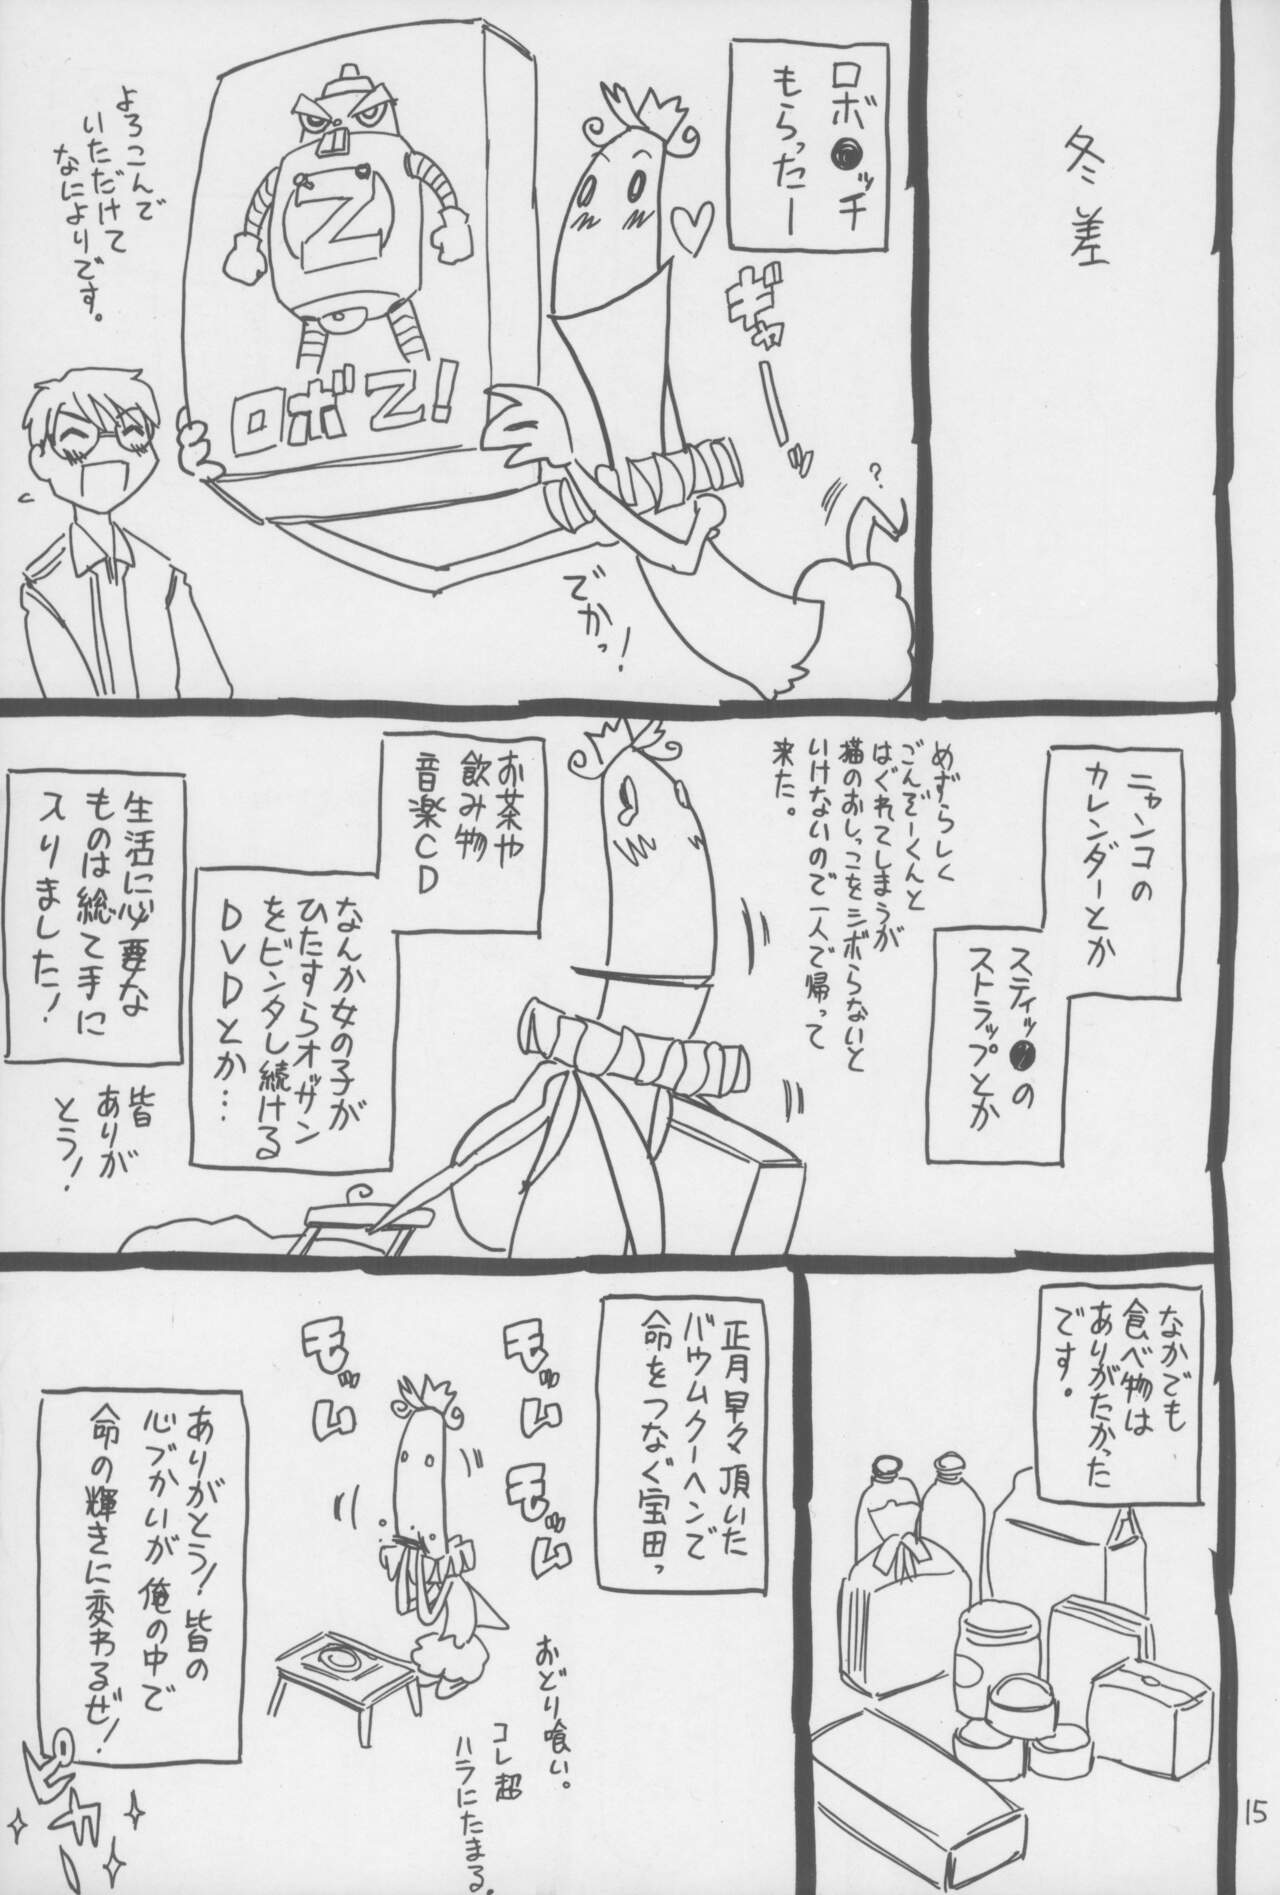 冬差
ロボ●ッチ
もらったー
ギャーッ
?
でかっ!
Z
ロボZ!
よろこんで
いただけて
なによりです。
ニャンコの
カレンダーとか
スティッ●の
ストラップとか
めずらしく
ごんぞーくんと
はぐれてしまうが
猫のおしっこをシボらないと
いけないので一人で帰って
来た。
お茶や
飲み物
音楽CD
なんか女の子が
ひたすらオッサン
をビンタし続ける
DVDとか…
生活に必要な
ものは総て手に
入りました!
皆
ありが
とう!
なかでも
食べ物は
ありがたかった
です。
正月早々頂いた
バウムクーヘンで
命をつなぐ宝田っ
モッム
モッム
モッム
おどり喰い。
コレ超
ハラにたまる。
ありがとう!皆の
心づかいが俺の中で
命の輝きに変わるぜ!
ピカー
15